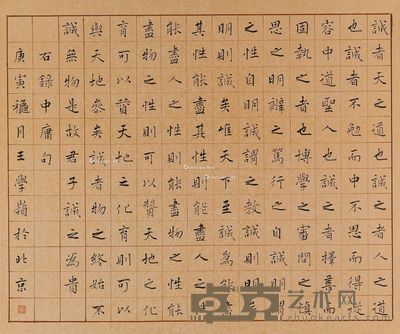 誠者天之道也誠之者人之道
也誠者不勉而中不思而得從
容中道聖人也誠之者擇善而
固執之者也博學之審問之慎
思之明辨之篤行之自誠明謂
之性自明誠謂之教誠則明矣
明則誠矣唯天下至誠為能盡
其性能盡其性則能盡人之性
能盡人之性則能盡物之性能
盡物之性則可以贊天地之化
育可以贊天地之化育則可以
與天地參矣誠者物之終始不
誠無物是故君子誠之為貴
右錄中庸句
庚寅穐月王學嶺於北京
卓克艺术网